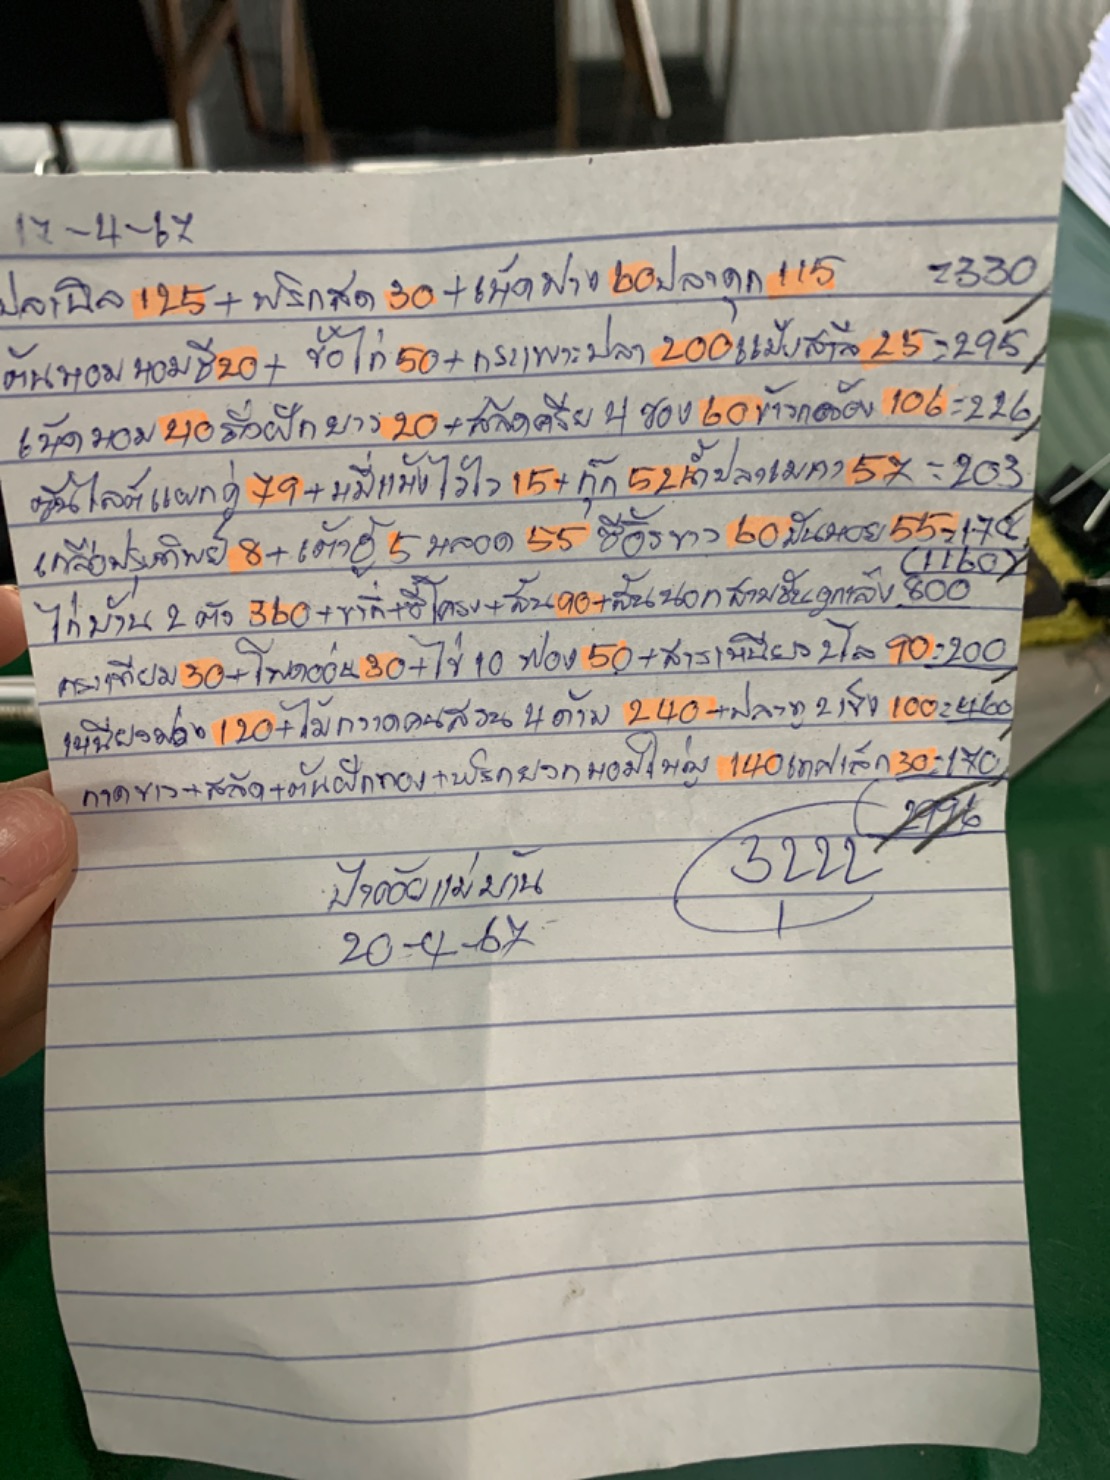 17-4-67
ปลานิล 125 + พริกสด 30 + เห็ดฟาง 60 ปลาดุก 115 =330
ต้นหอมหอมชี 20 + ข้อไก่ 50 + กระเพาะปลา 200 แป้งสาลี 25 =295
เห็ดหอม 40 ถั่วฝักยาว 20 + สลัดครีม 4 ซอง 60 ข้าวกล้อง 106 =226
ซันไลต์แพกคู่ 79 + หมี่แห้งไวไว 15 + กุ๊ก 52 น้ำปลาเมกา 57 =203
เกลือปรุงทิพย์ 8 + เต้าหู้ 5 หลอด 55 ซีอิ๊วขาว 60 มันหอย 55 =178
(1160)
ไก่บ้าน 2 ตัว 360 + ขากี้ + ซี่โครง + สัน 90 + สันนอกสามชั้น 800
กระเทียม 30 + โพดอ่อน 30 + ไข่ 10 ฟอง 50 + สารเหนียว 2 โล 90 =200
เหนียวม่วง 120 + ไม้กวาดคนสวน 4 ด้าม 240 + ปลาทู 2 เข่ง 100 =460
กาดขาว + สลัด + ต้นฝักทอง + พริกยวกหอมใหญ่ 140 เทศเล็ก 30 =170
2996
3222
ป้าต้อยแม่บ้าน
20-4-67